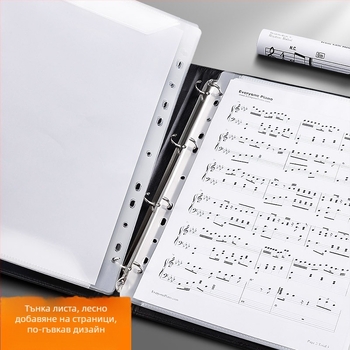 Everyone Piano
Тънка листа, лесно
добавяне на страници,
по-гъвкав дизайн